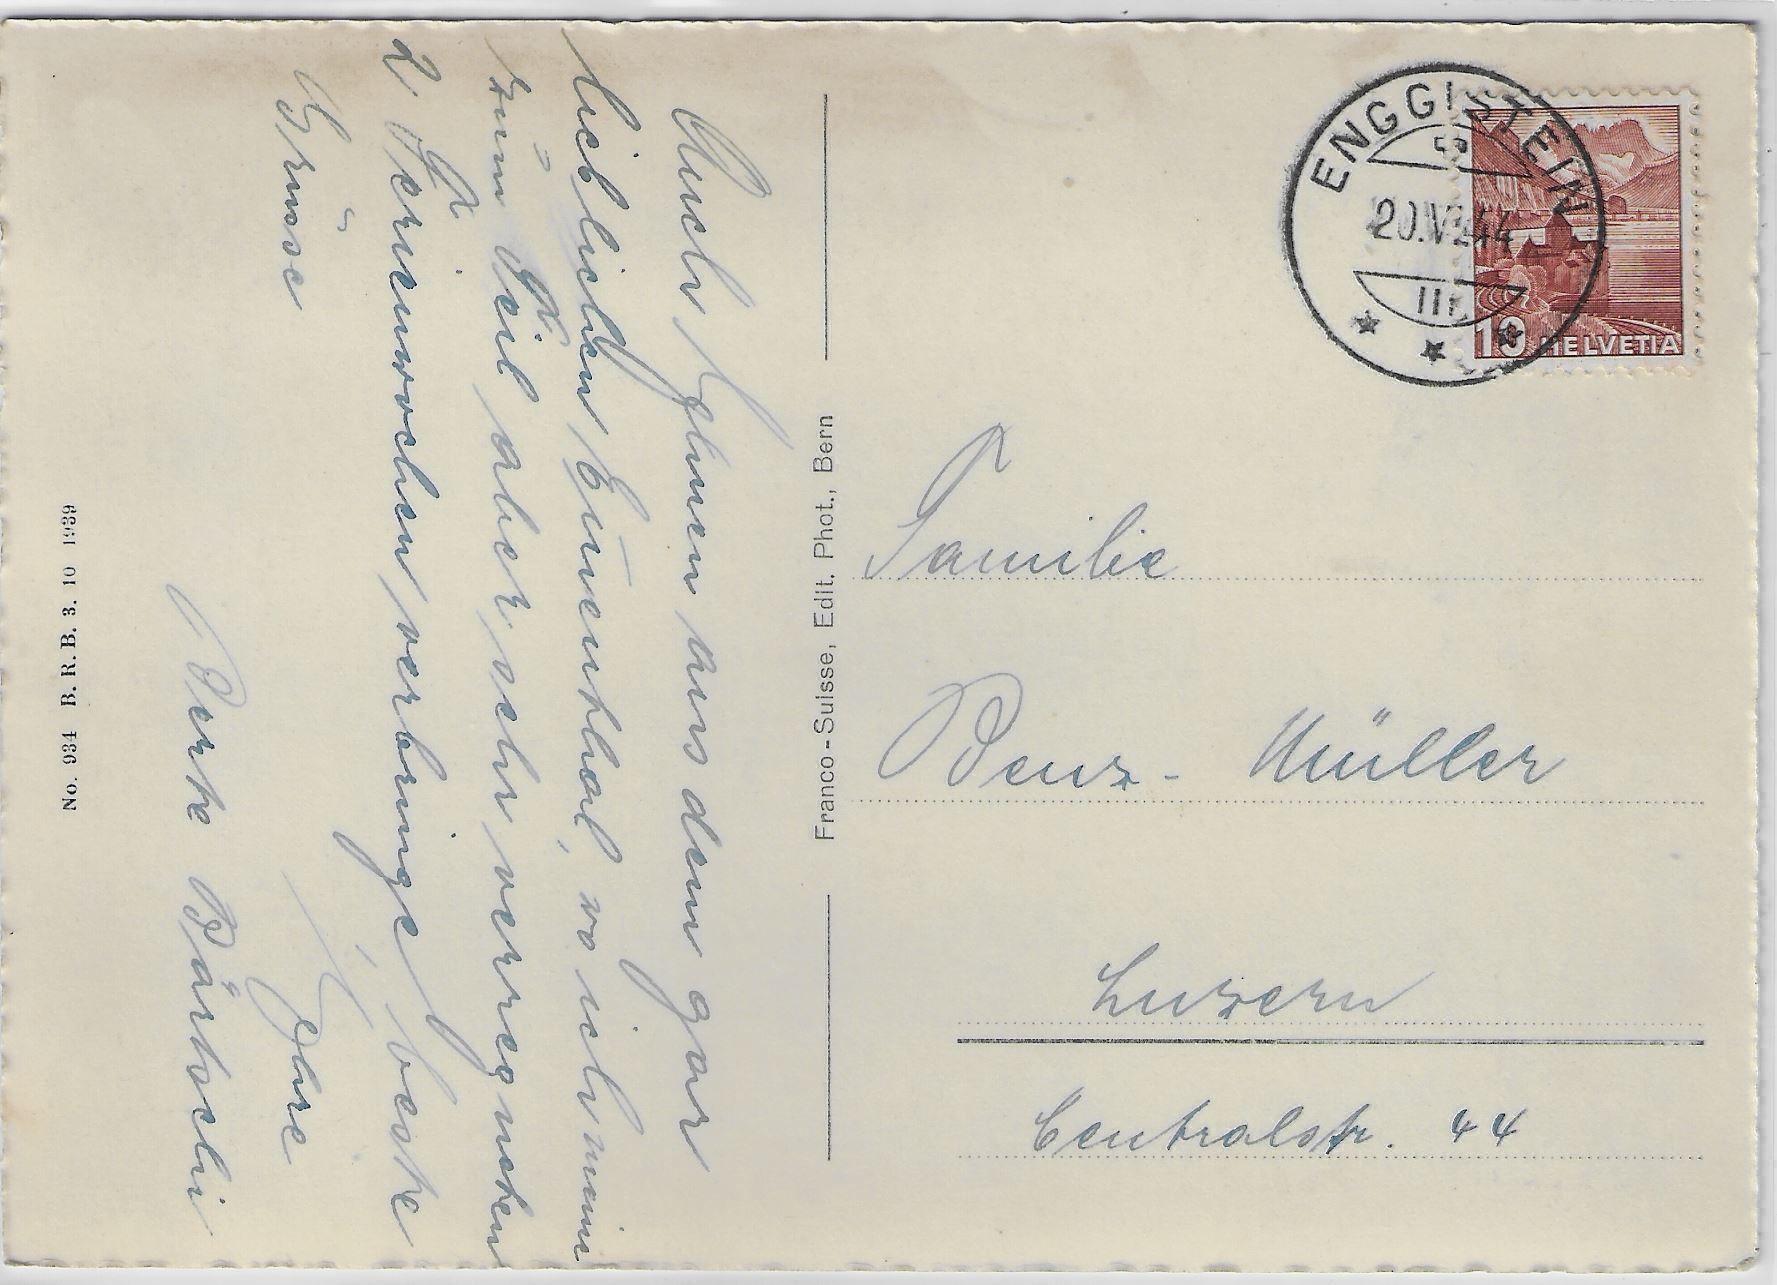 Auch Ihnen aus dem gar
lieblichen Emmenthal, wo ich meine
zum Teil aber sehr verregneten
2 Ferienwochen verbringe, beste
Grüsse
Ihre
Berta Bärtschi
No. 934 B. R. B. 3. 10 1939
Franco-Suisse, Edit. Phot., Bern
ENGGISTEIN
20.VII.44
10 HELVETIA
Familie
Benz-Müller
Luzern
Centralstr. 44